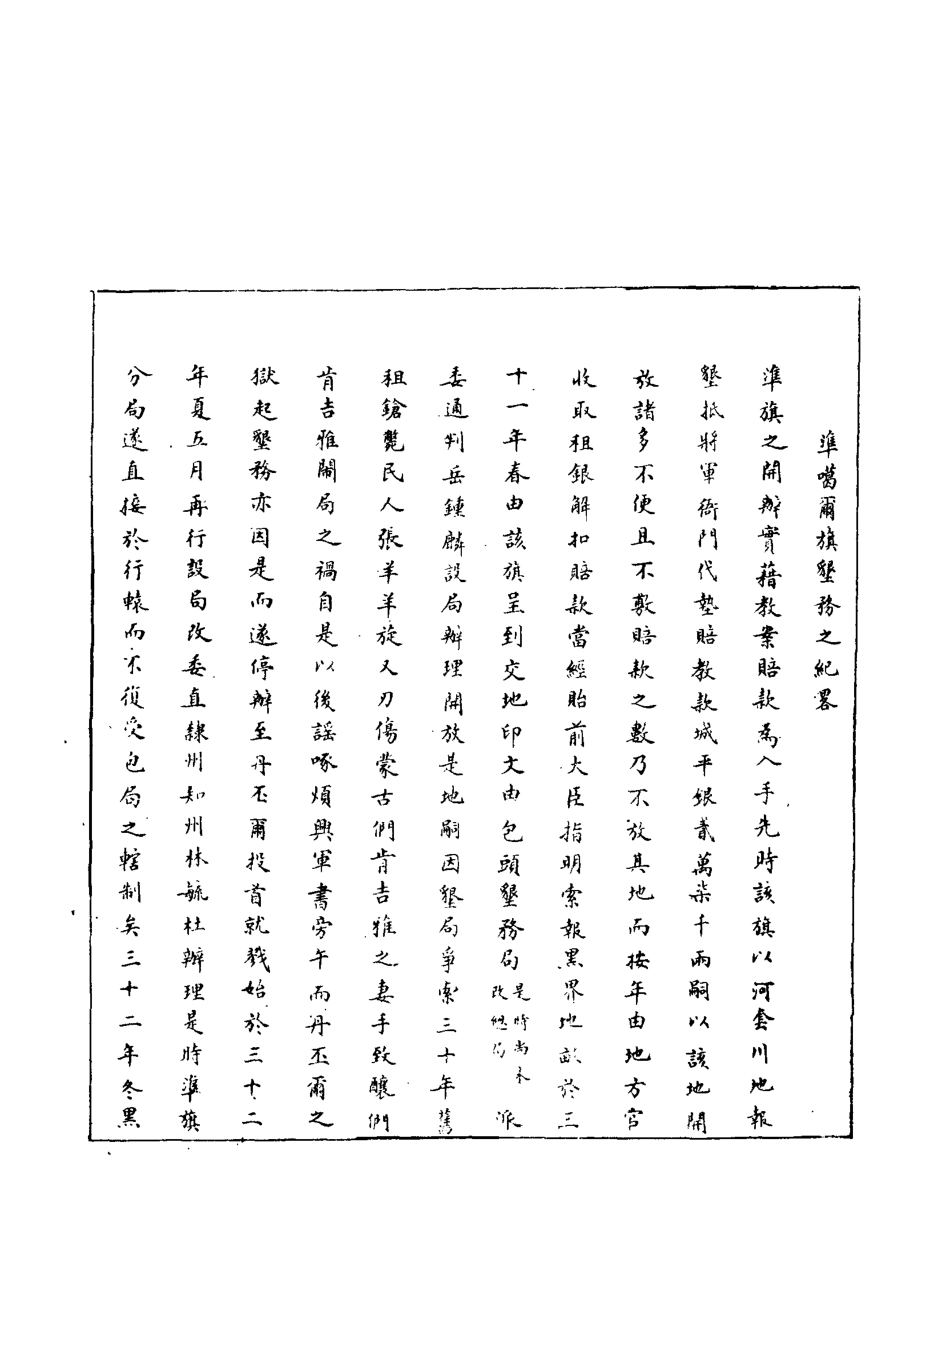 準噶爾旗墾務之紀畧
準旗之開辦實藉教案賠款為入手先時該旗以河套川地報
墾抵將軍衙門代墊賠教款城平銀貳萬柒千兩嗣以該地開
放諸多不便且不敷賠款之數乃不放其地而按年由地方官
收取租銀解扣賠款當經貽前大臣指明索報黑界地畝於三
十一年春由該旗呈到交地印文由包頭墾務局是時尚未改總局派
委通判岳鍾麟設局辦理開放是地嗣因墾局爭索三十年舊
租鎗斃民人張羊羊旋又刃傷蒙古們肯吉雅之妻手致釀們
肯吉雅鬧局之禍自是以後謠啄煩興軍書旁午而丹丕爾之
獄起墾務亦因是而遂停辦至丹丕爾投首就戮始於三十二
年夏五月再行設局改委直隸州知州林毓杜辦理是時準旗
分局遂直接於行轅而不復受包局之轄制矣三十二年冬黑